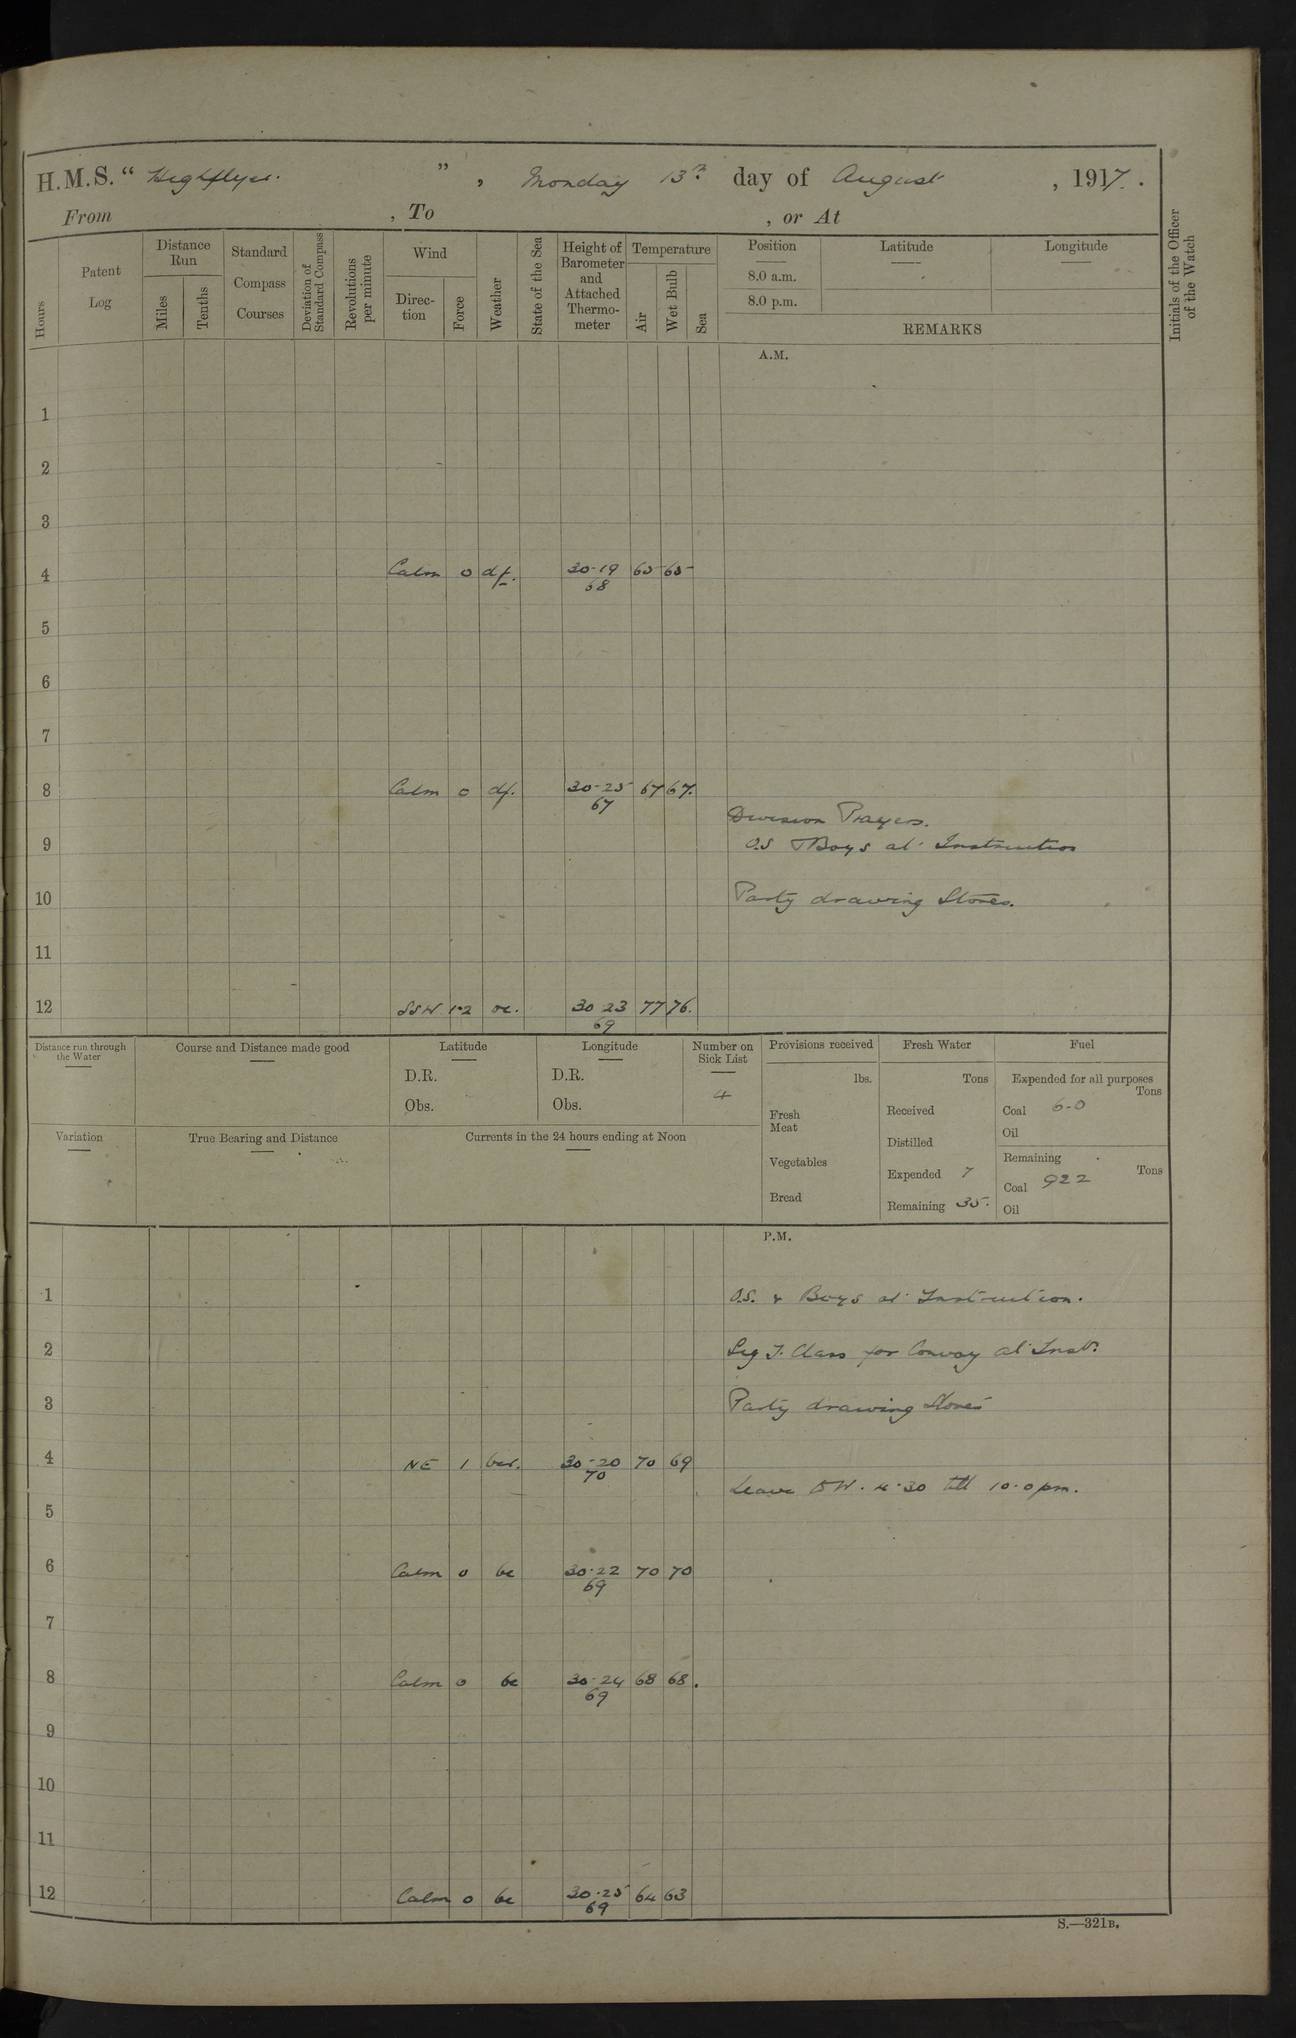 H.M.S. "Highflyer.", Monday 13th day of August, 1917.
From , To , or At
Hours
Patent Log
Distance Run
Miles
Tenths
Standard Compass Courses
Deviation of Standard Compass
Revolutions per minute
Wind
Direction
Force
Weather
State of the Sea
Height of Barometer and Attached Thermometer
Temperature
Air
Wet Bulb
Sea
Position
8.0 a.m.
8.0 p.m.
Latitude
Longitude
REMARKS
Initials of the Officer of the Watch
A.M.
1
2
3
4 Calm 0 df. 30.19 65 65
68
5
6
7
8 Calm 0 df. 30.25 67 67.
67
Division Prayers.
9 O.S & Boys at Instruction
10 Party drawing Stores.
11
12 SSW 1.2 oc. 30 23 77 76.
69
Distance run through the Water
Course and Distance made good
Latitude
D.R.
Obs.
Longitude
D.R.
Obs.
Number on Sick List
4
Provisions received
lbs.
Fresh Meat
Vegetables
Bread
Fresh Water
Tons
Received
Distilled
Expended 7
Remaining 35.
Fuel
Expended for all purposes
Tons
Coal 6.0
Oil
Remaining
Tons
Coal 922
Oil
Variation
True Bearing and Distance
Currents in the 24 hours ending at Noon
P.M.
1 O.S. & Boys at Instruction.
2 Sig T. Class for Convoy at Inst.
3 Party drawing Stores
4 NE 1 bcr. 30.20 70 69
70
Leave 4.30 till 10.0 pm.
5
6 Calm 0 bc 30.22 70 70
69
7
8 Calm 0 bc 30.24 68 68.
69
9
10
11
12 Calm 0 bc 30.25 64 63
69
S.—321B.